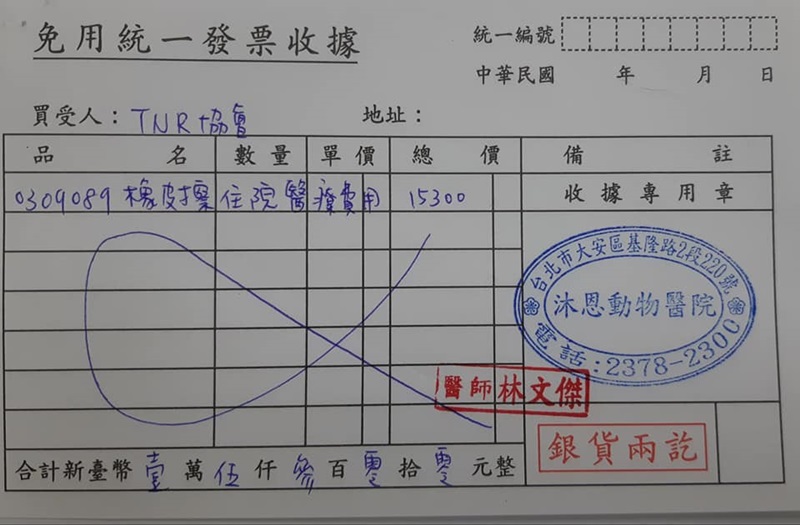 免用統一發票收據
統一編號
中華民國 年 月 日
買受人：TNR協會 地址：
品名 數量 單價 總價 備註
0309089 橡皮擦 住院醫療費用 15300 收據專用章
台北市大安區基隆路2段220號
沐恩動物醫院
電話:2378-2300
醫師林文傑
銀貨兩訖
合計新臺幣壹萬伍仟參百零拾零元整